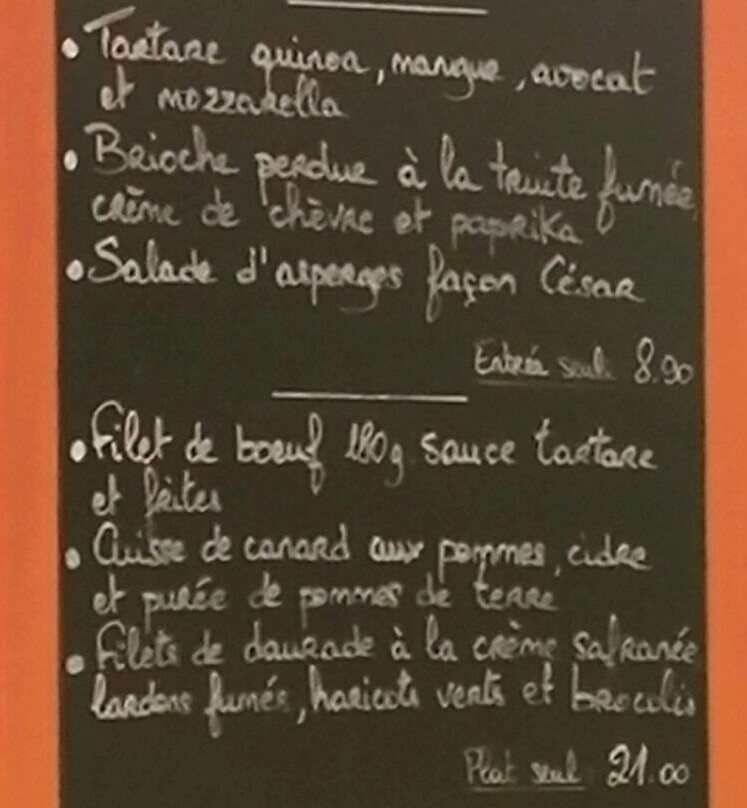 • Tartare quinoa, mangue, avocat
et mozzarella
• Brioche perdue à la truite fumée,
crème de chèvre et paprika
• Salade d'asperges façon César
Entrée seul 8.90
• Filet de boeuf 180g sauce tartare
et frites
• Cuisse de canard aux pommes, cidre
et purée de pommes de terre
• Filets de daurade à la crème safranée
lardons fumés, haricots verts et brocolis
Plat seul 21.00